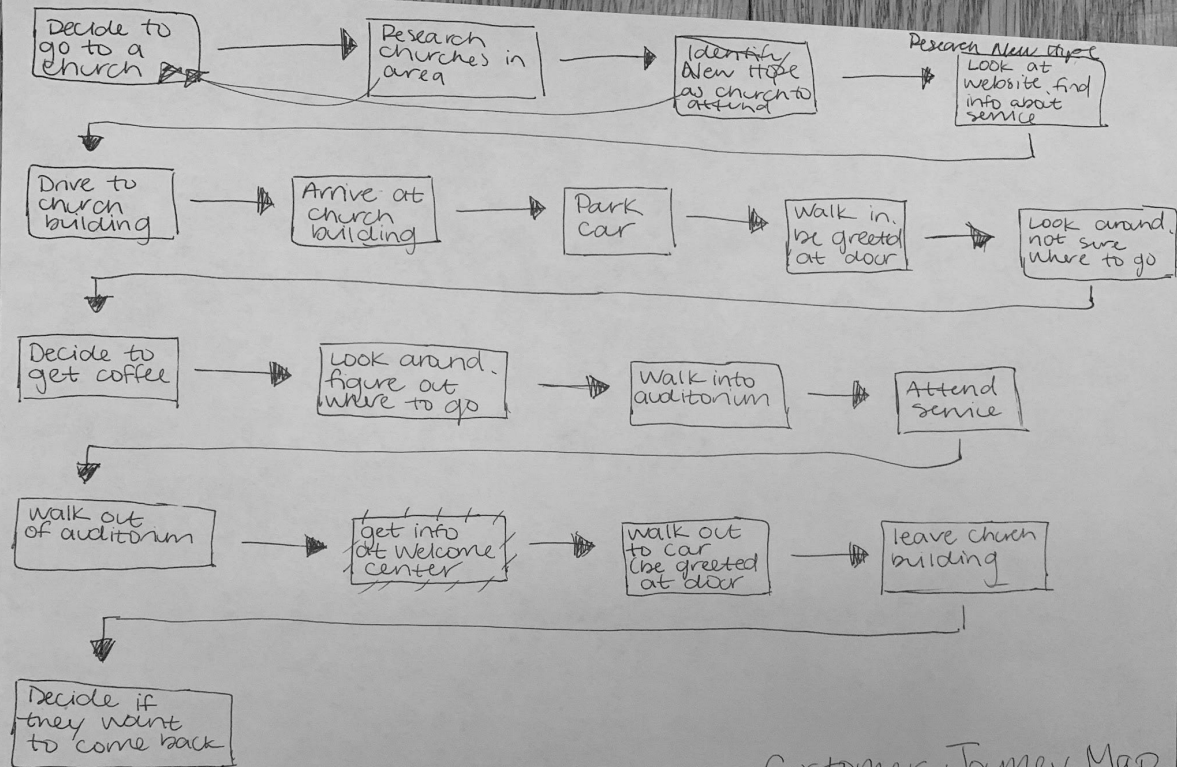 Decide to
go to a
church
Research
churches in
area
Identify
New Hope
as church to
attend
Research New Hope
Look at
website, find
info about
service
Drive to
church
building
Arrive at
church
building
Park
car
Walk in.
be greeted
at door
Look around.
not sure
where to go
Decide to
get coffee
Look around.
figure out
where to go
Walk into
auditorium
Attend
service
Walk out
of auditorium
get info
at welcome
center
Walk out
to car
(be greeted
at door
leave church
building
Decide if
they want
to come back
Customer Journey Map